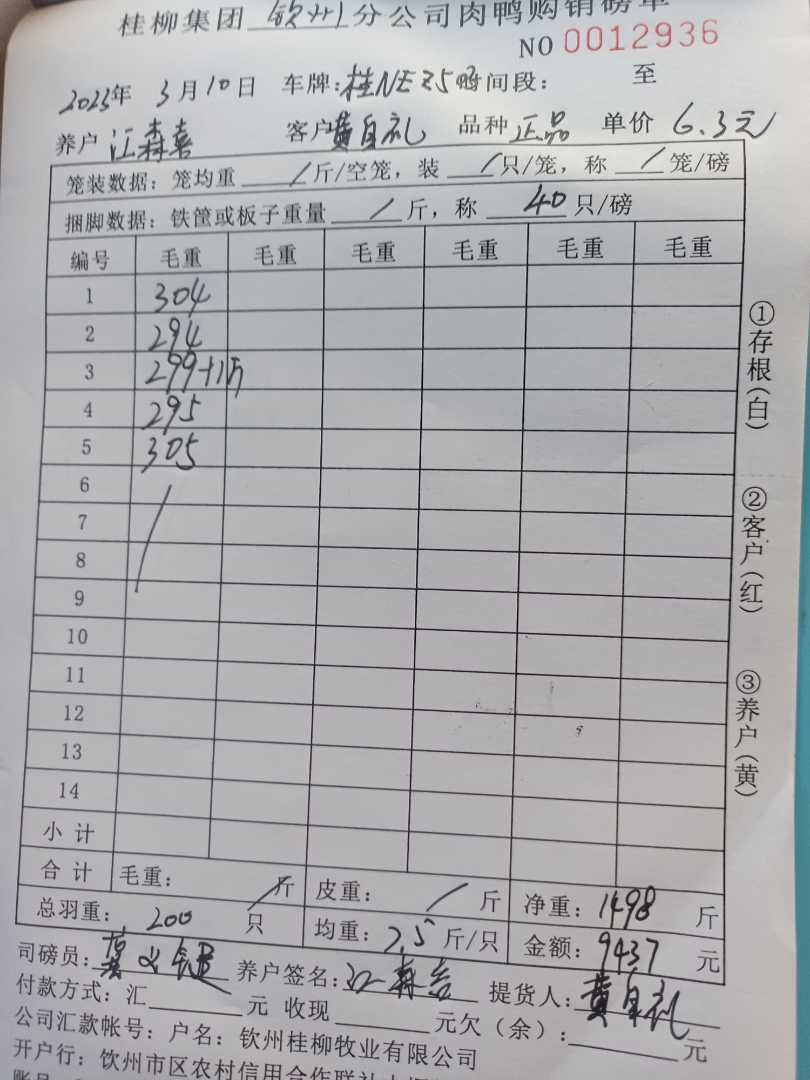 桂柳集团 钦州 分公司肉鸭购销磅单
NO 0012936
2023年 3月10日 车牌:桂NEZ5 时间段: 至
养户 江森喜 客户 黄自礼 品种 正品 单价 6.3元
笼装数据:笼均重 / 斤/空笼,装 / 只/笼,称 / 笼/磅
捆脚数据:铁筐或板子重量 / 斤,称 40 只/磅
编号 毛重 毛重 毛重 毛重 毛重 毛重
1 304
2 294
3 299+1斤
4 295
5 305
6
7
8
9
10
11
12
13
14
小计
合计 毛重: / 斤 皮重: / 斤 净重: 1498 斤
总羽重: 200 只 均重: 7.5 斤/只 金额: 9437 元
司磅员: 养户签名: 江森喜 提货人: 黄自礼
付款方式:汇 元 收现 元欠(余): 元
公司汇款帐号:户名:钦州桂柳牧业有限公司
开户行:钦州市区农村信用合作联社
①存根(白)
②客户(红)
③养户(黄)